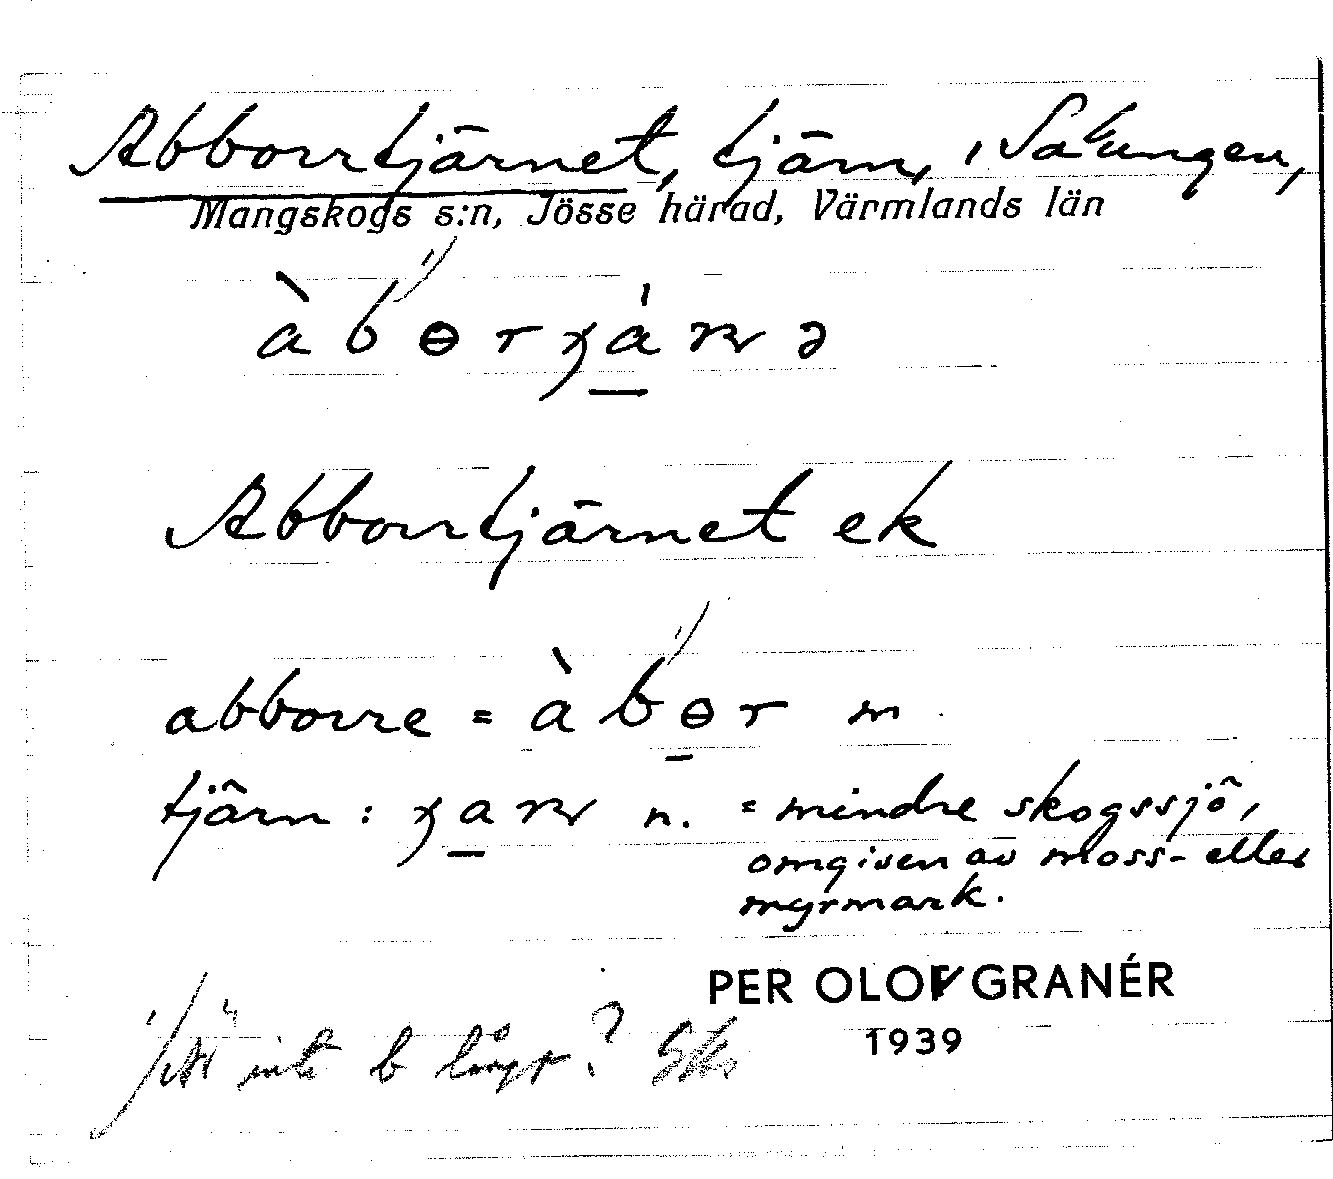 Abborrtjärnet, tjärn, i Sakungen,
Mangskogs s:n, Jösse härad, Värmlands län
àbɵrɟa̱ʼɳə
Abborrtjärnet ek
abborre = àbɵ̱r m.
tjärn: n. = mindre skogssjö,
omgiven av moss- eller
myrmark.
PER OLOV GRANÉR
1939
inte b långt?